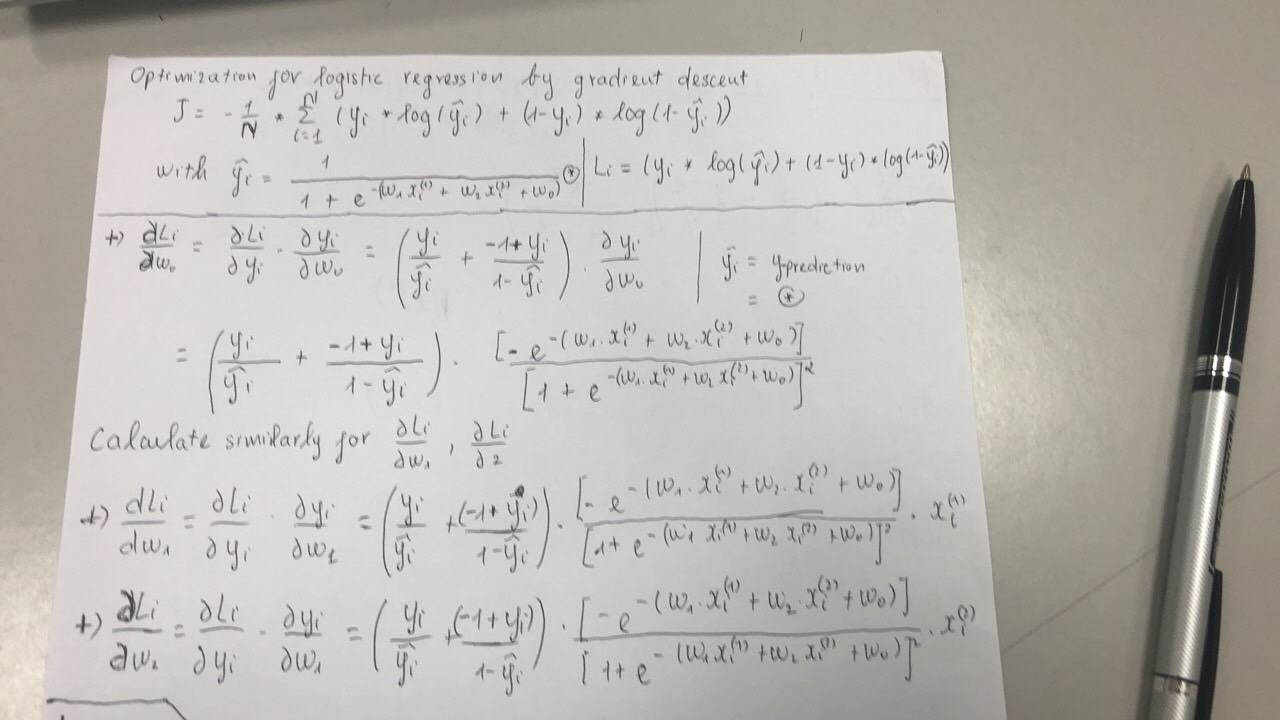 Optimization for logistic regression by gradient descent
J = -1/N * Σ_{i=1}^{N} (yi * log(ŷi) + (1-yi) * log(1-ŷi))
with ŷi = 1 / (1 + e^{-(w1 xi^(1) + w2 xi^(2) + w0)}) ⊛ | Li = (yi * log(ŷi) + (1-yi) * log(1-ŷi))
+) ∂Li/∂w0 = ∂Li/∂yi · ∂yi/∂w0 = (yi/ŷi + (-1+yi)/(1-ŷi)) · ∂yi/∂w0 | ŷi = y-prediction
= ⊛
= (yi/ŷi + (-1+yi)/(1-ŷi)) · [-e^{-(w1·xi^(1) + w2·xi^(2) + w0)}] / [1 + e^{-(w1·xi^(1) + w2 xi^(2) + w0)}]^2
Calculate similarly for ∂Li/∂w1, ∂Li/∂2
+) dLi/dw1 = ∂Li/∂yi · ∂yi/∂w1 = (yi/ŷi + (-1+yi)/(1-ŷi)) · [-e^{-(w1·xi^(1) + w2·xi^(2) + w0)}] / [1 + e^{-(w1 xi^(1) + w2 xi^(2) + w0)}]^2 · xi^(1)
+) ∂Li/∂w2 = ∂Li/∂yi · ∂yi/∂w1 = (yi/ŷi + (-1+yi)/(1-ŷi)) · [-e^{-(w1·xi^(1) + w2·xi^(2) + w0)}] / [1 + e^{-(w1 xi^(1) + w2 xi^(2) + w0)}]^2 · xi^(2)